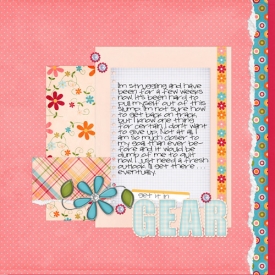 I'm struggling and have
been for a few weeks
now. It's been hard to
pull myself out of this
slump. I'm not sure how
to get back on track
but I know one thing
for certain, I don't want
to give up. Not at all. I
am so much closer to
my goal than ever be-
fore and it would be
dumb of me to quit
now. I just need a fresh
outlook. I'll get there...
eventually.
get it in
GEAR